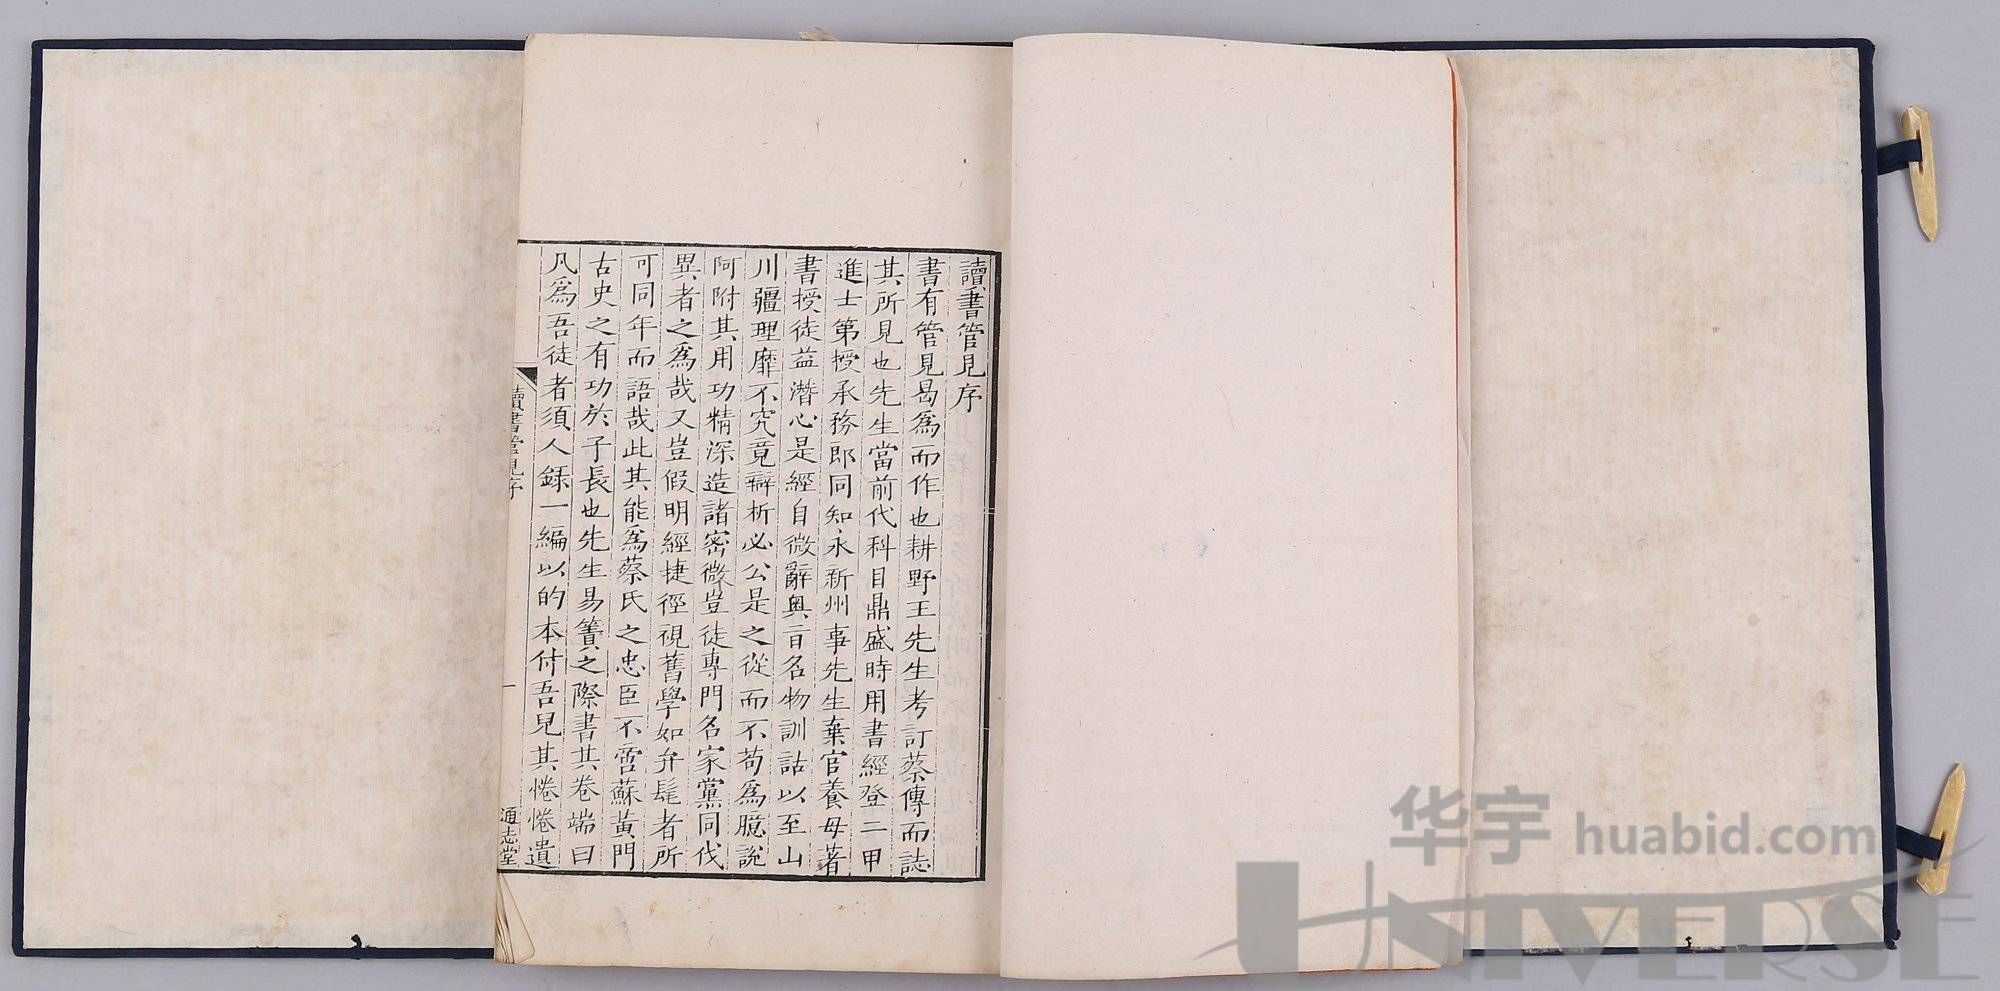 讀書管見序
書有管見曷爲而作也耕野王先生考訂蔡傳而誌
其所見也先生當前代科目鼎盛時用書經登二甲
進士第授承務郎同知永新州事先生棄官養母著
書授徒益潛心是經自微辭奧旨名物訓詁以至山
川疆理靡不究竟辯析必公是之從而不茍爲臆說
阿附其用功精深造諸密微豈徒專門名家黨同伐
異者之爲哉又豈假明經捷徑視舊學如弁髦者所
可同年而語哉此其能爲蔡氏之忠臣不啻蘇黃門
古史之有功於子長也先生易簀之際書其卷端曰
凡爲吾徒者須人錄一編以的本付吾兒其惓惓遺
讀書管見序
一
通志堂
华宇 huabid.com
UNIVERSE